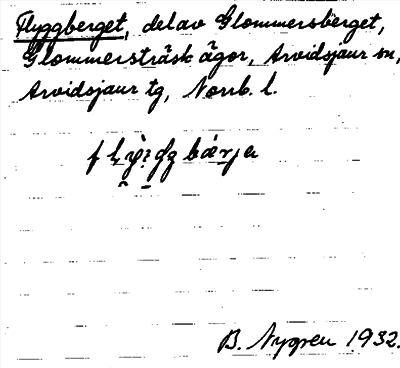 Flyggberget, del av Glommersberget,
Glommersträsk ägor, Arvidsjaur sn,
Arvidsjaur tg, Norrb. l.
B. Nygren 1932.